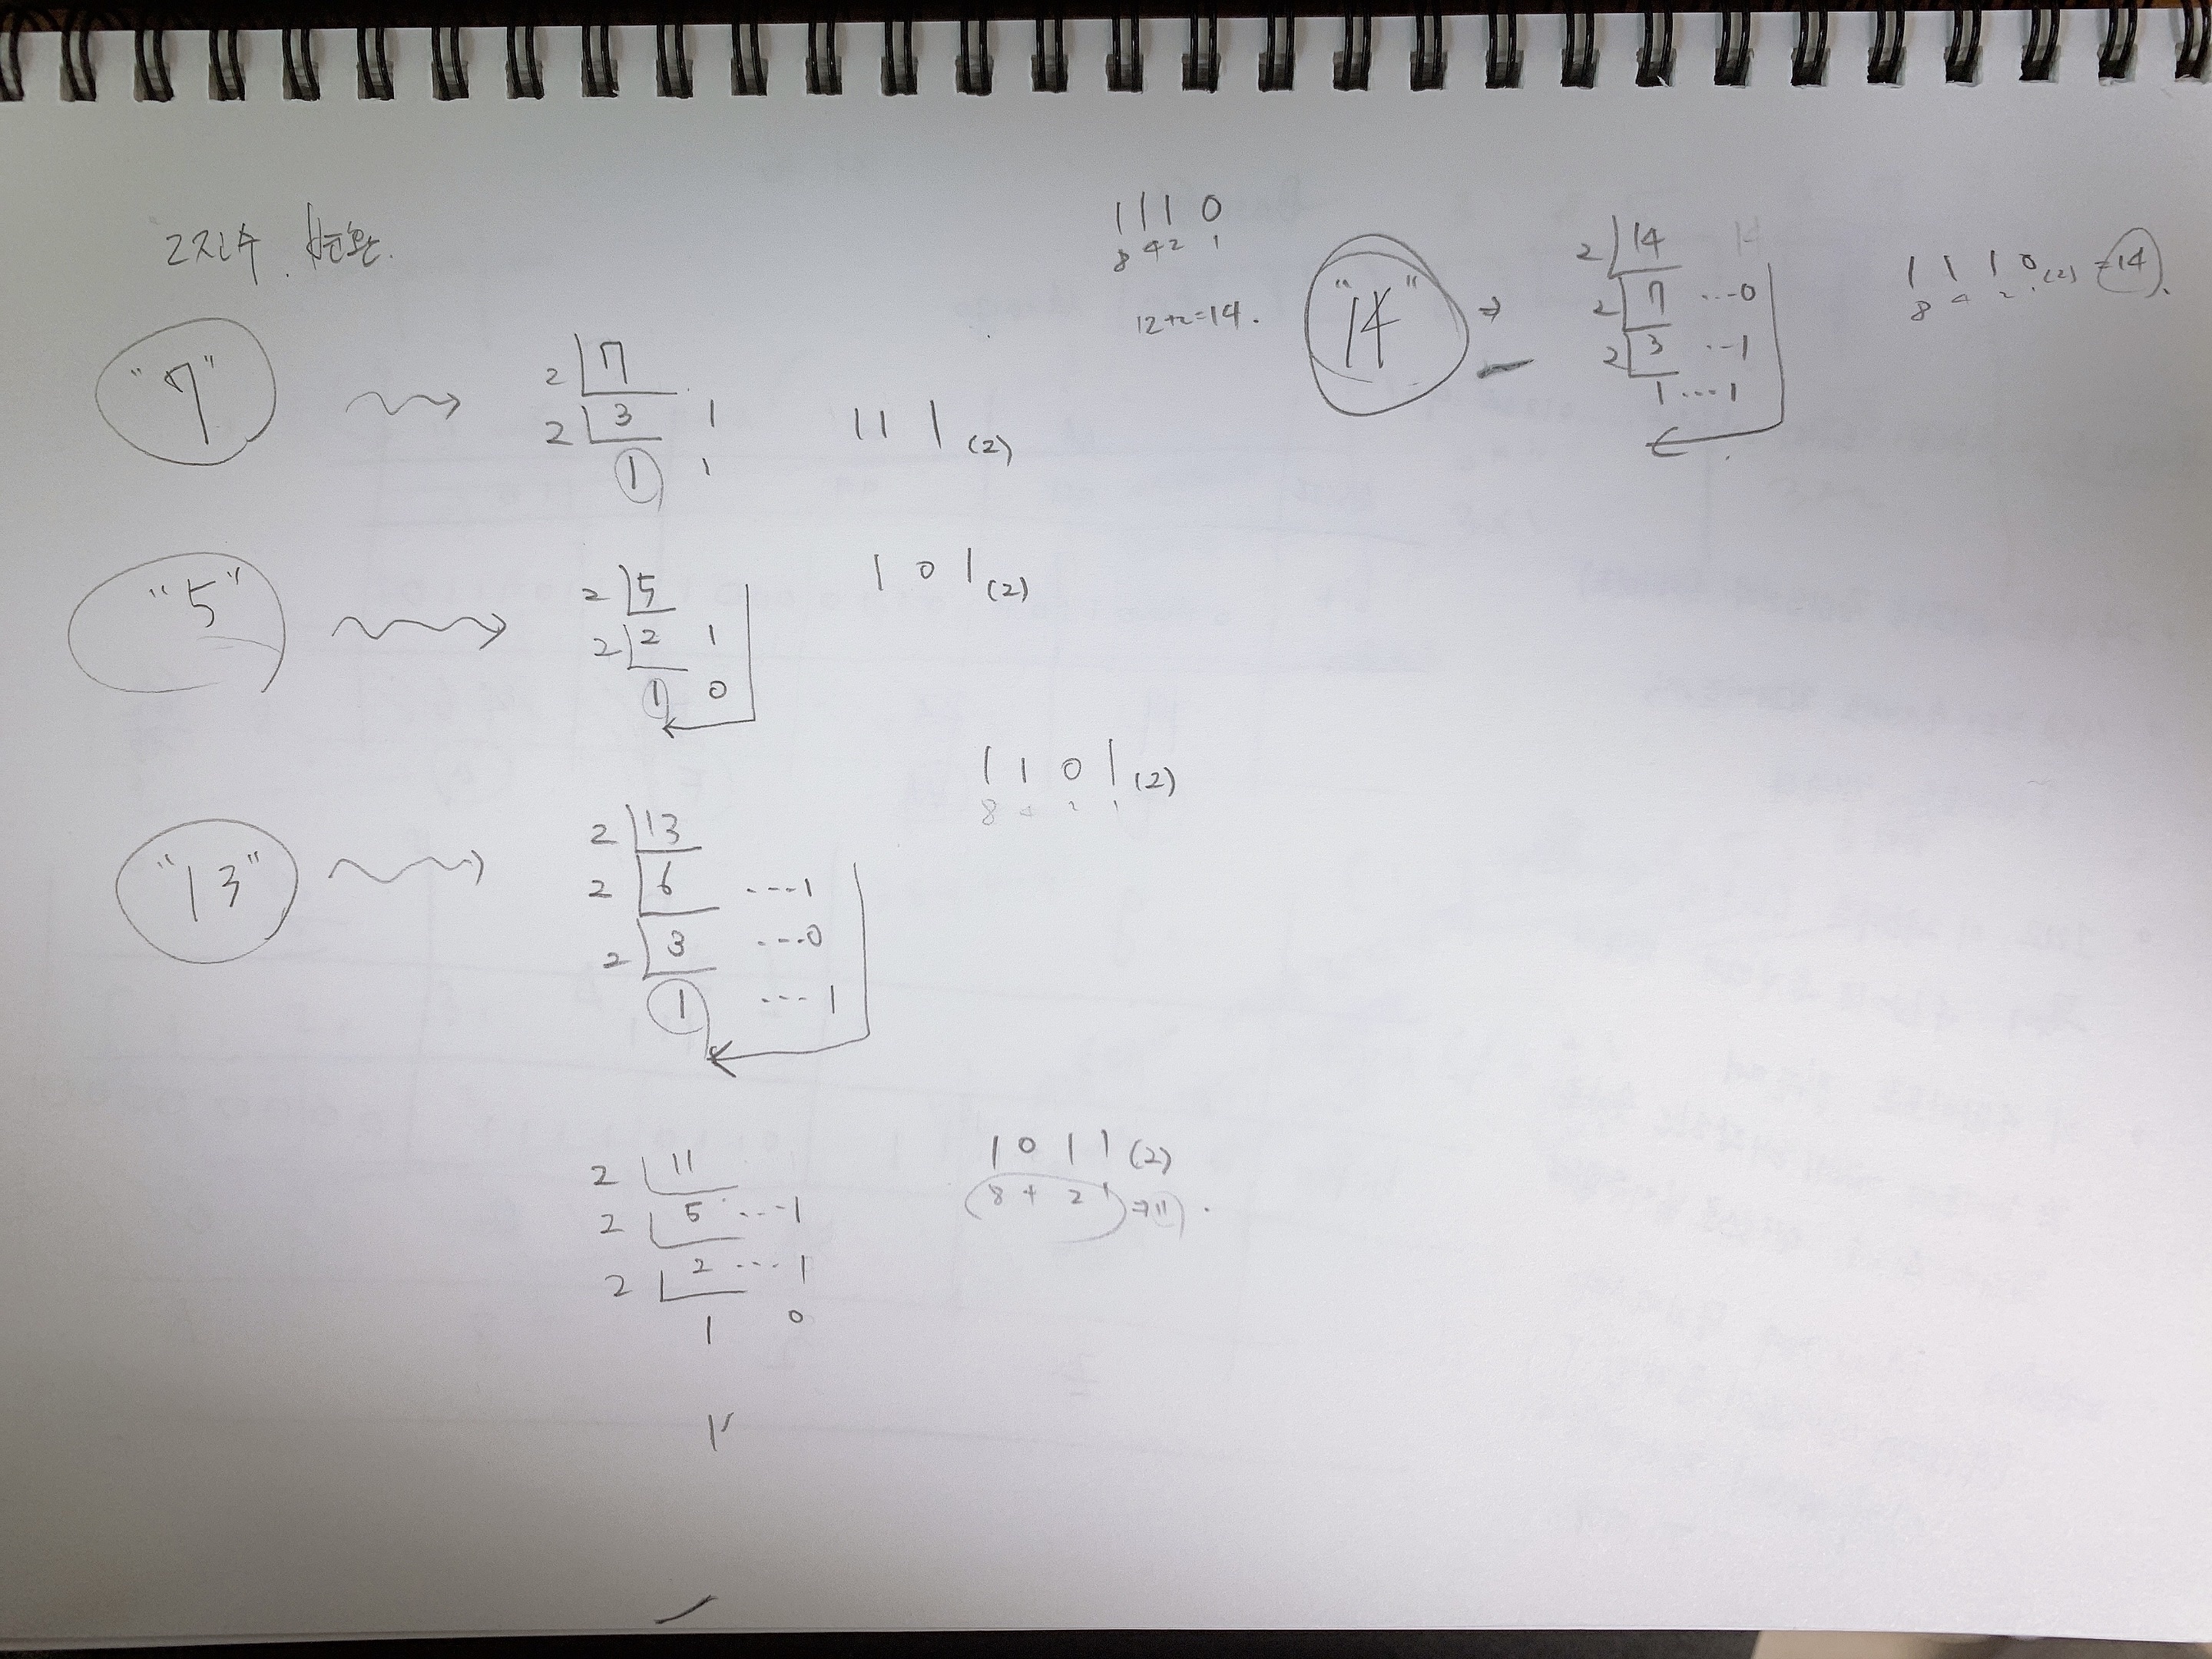 2진수 변환.
"7"
2 7
2 3 1
1 1
111(2)
"5"
2 5
2 2 1
1 0
101(2)
"13"
2 13
2 6 ---1
2 3 ---0
1 --- 1
1101(2)
8 4 2 1
2 11
2 5 ---1
2 2 ---1
1 0
1011(2)
8 + 2 1 => 11.
1110
8 4 2 1
12+2=14.
"14" ⇒
2 14 14
2 7 ---0
2 3 --1
1 ---1
1110(2) = 14.
8 4 2 1